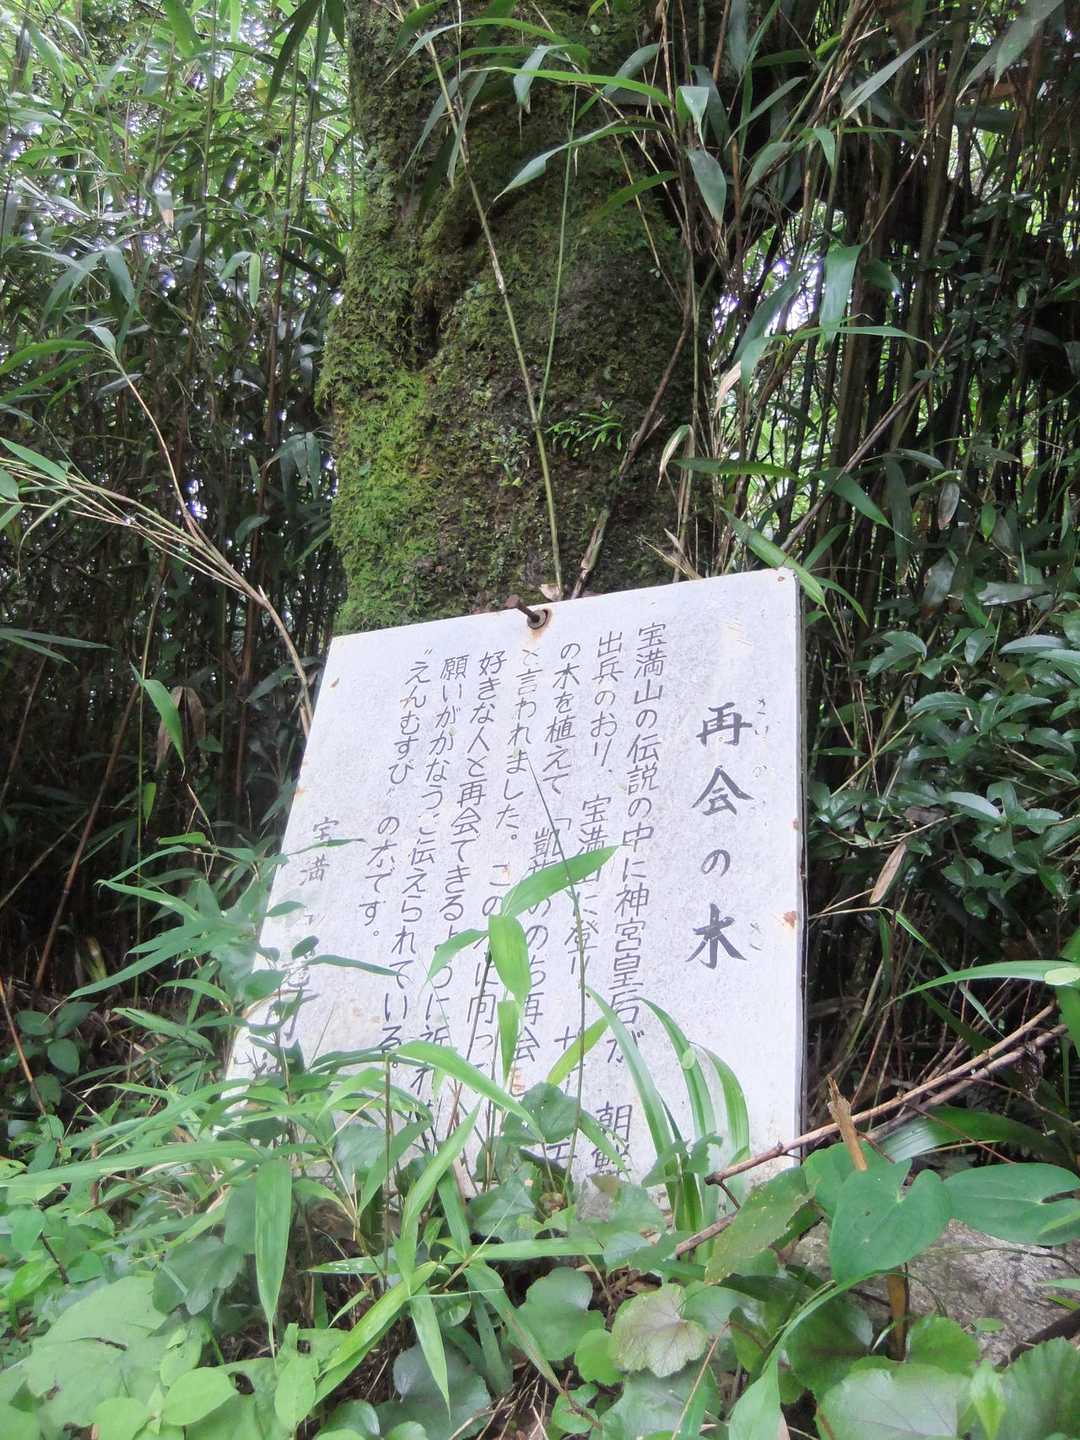 さいかい き
再会の木
宝満山の伝説の中に神宮皇后が 朝鮮
出兵のおり、宝満山に登り
の木を植えて「凱旋ののち再会
と言われました。この木に向っ
好きな人と再会できるように祈れ
願いがかなうと伝えられている。
”えんむすび”の木です。
宝満 竈門